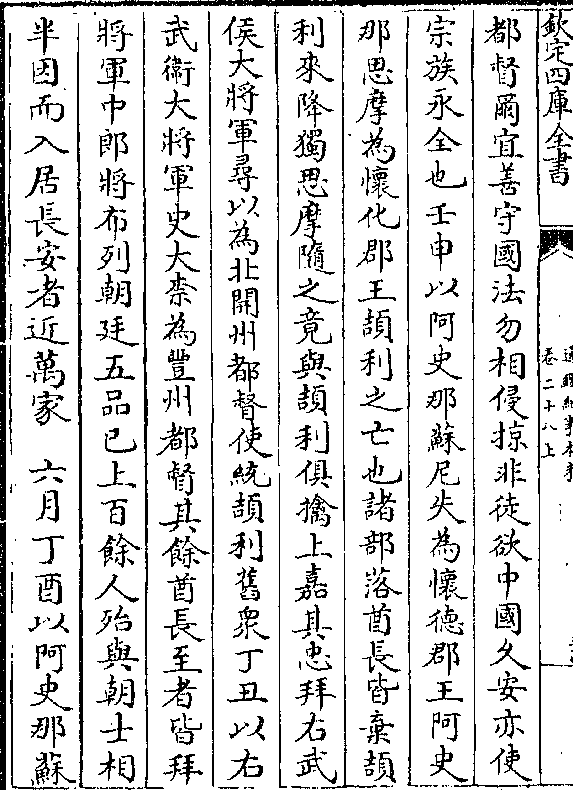 欽定四庫全書
通鑑紀事本末
卷二十八上
都督爾宜善守國法勿相侵掠非徒欲中國久安亦使
宗族永全也壬申以阿史那蘇尼失為懷德郡王阿史
那思摩為懷化郡王頡利之亡也諸部落酋長皆棄頡
利來降獨思摩隨之竟與頡利俱擒上嘉其忠拜右武
侯大將軍尋以為北開州都督使統頡利舊衆丁丑以右
武衛大將軍史大柰為豐州都督其餘酋長至者皆拜
將軍中郎將布列朝廷五品已上百餘人殆與朝士相
半因而入居長安者近萬家 六月丁酉以阿史那蘇